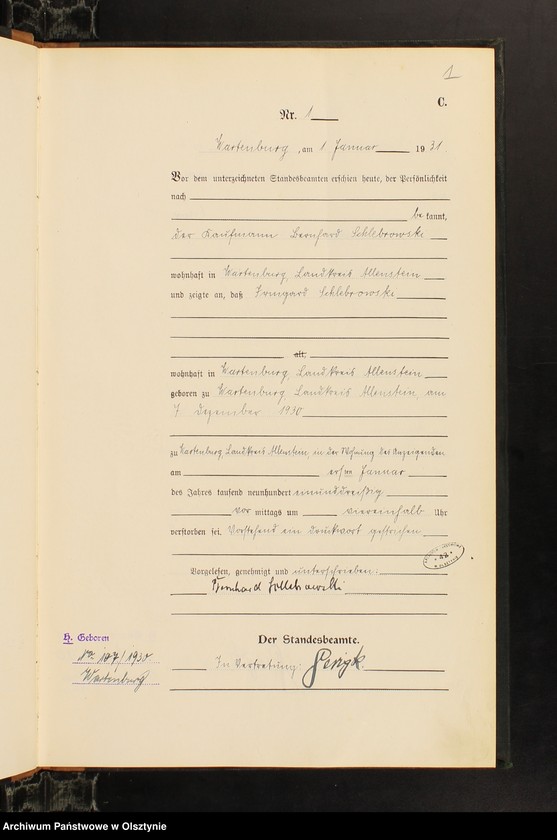 1
C.
Nr. 1
Wartenburg, am 1 Januar 1931.
Vor dem unterzeichneten Standesbeamten erschien heute, der Persönlichkeit
nach
be kannt,
der Kaufmann Bernhard Schlebrowski
wohnhaft in Wartenburg, Landkreis Allenstein
und zeigte an, daß Irmgard Schlebrowski
alt,
wohnhaft in Wartenburg, Landkreis Allenstein
geboren zu Wartenburg, Landkreis Allenstein, am
7. Dezember 1930
zu Wartenburg, Landkreis Allenstein, in der Wohnung des Anzeigenden
am ersten Januar
des Jahres tausend neunhundert einunddreißig
vor mittags um viereinhalb Uhr
verstorben sei. Vorstehend ein Druckwort gestrichen
Vorgelesen, genehmigt und unterschrieben:
Bernhard
Der Standesbeamte.
In Vertretung:
H. Geboren
No. 197/1930
Wartenburg
Archiwum Państwowe w Olsztynie